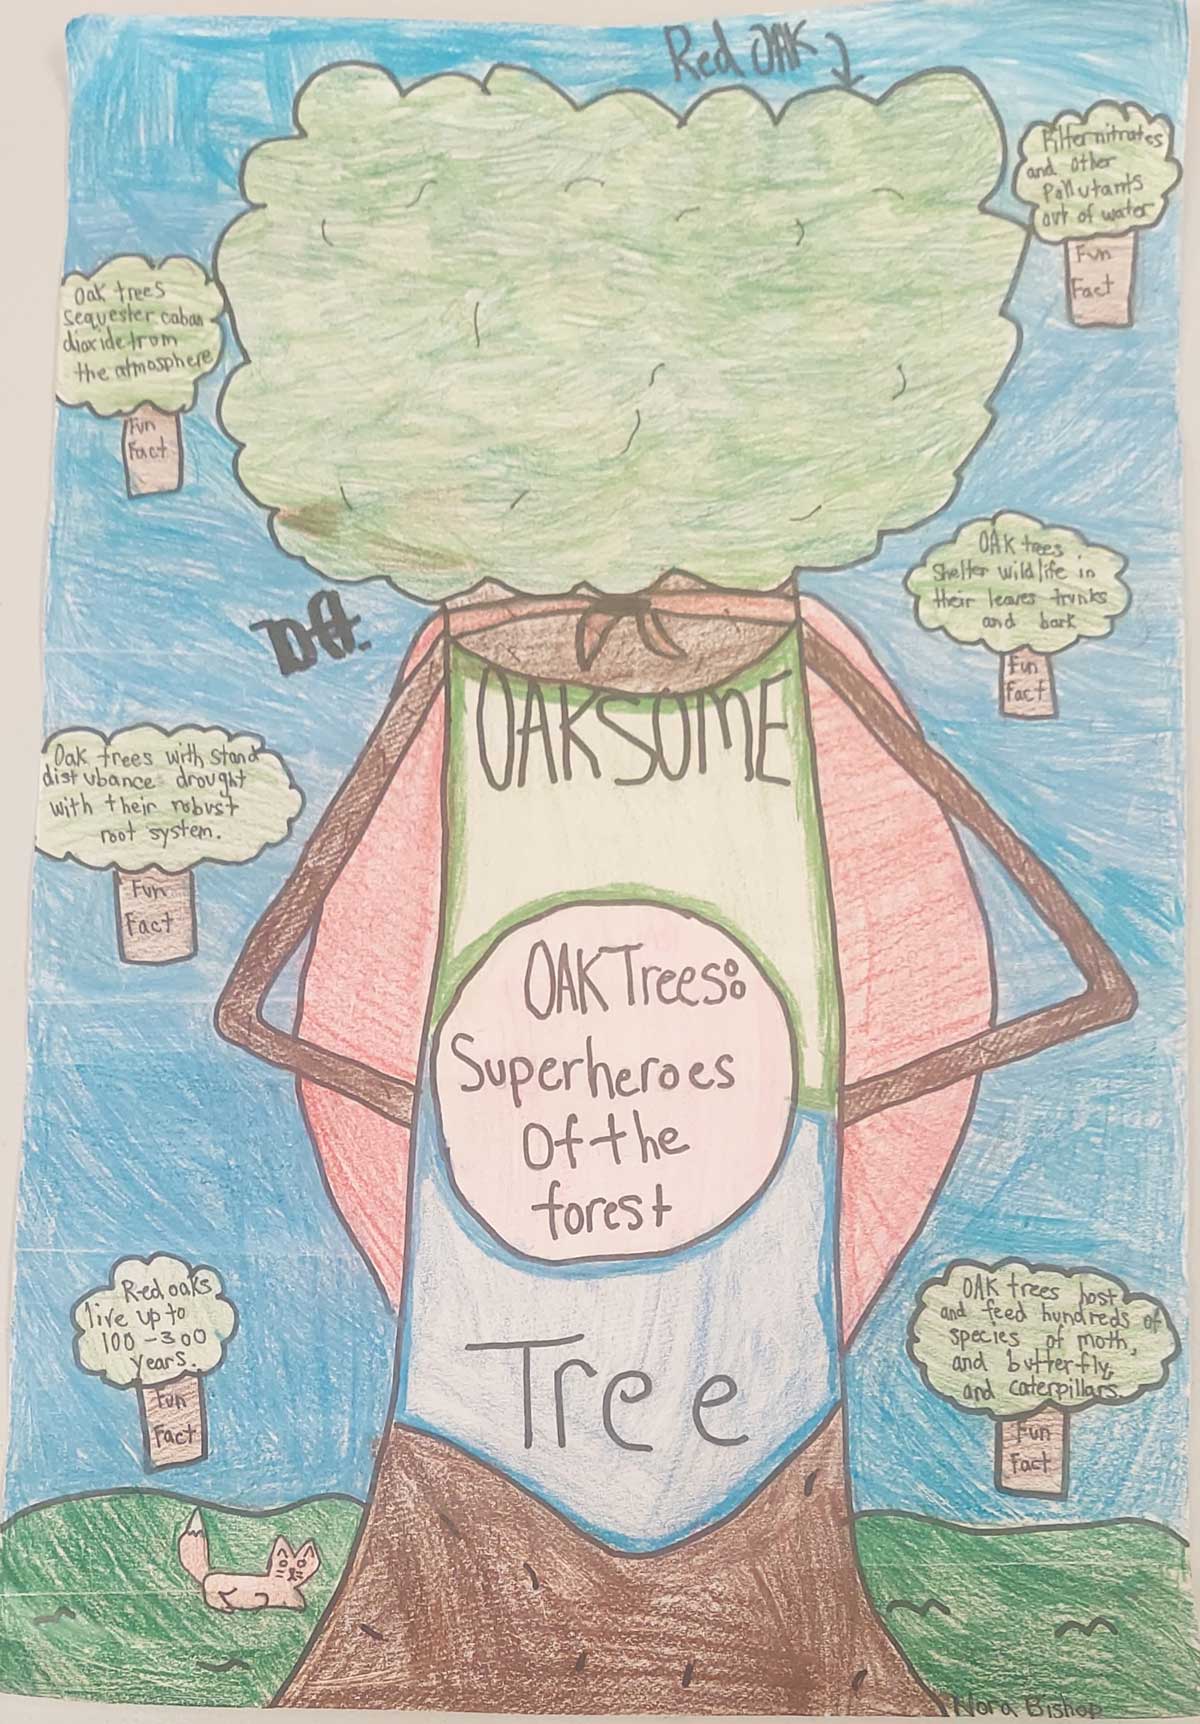 Red OAK
Filter nitrates
and other
Pollutants
out of water
Fun
Fact
Oak trees
sequester caban
dioxide from
the atmosphere
Fun
Fact
OAK trees
Shelter wildlife in
their leaves trunks
and bark
Fun
Fact
OAKSOME
Oak trees with stand
distubance drought
with their robust
root system.
Fun
Fact
OAK Trees:
Superheroes
Of the
forest
Tree
Red oaks
live up to
100-300
years.
Fun
Fact
OAK trees host
and feed hundreds of
species of moth,
and butterfly,
and caterpillars.
Fun
Fact
Nora Bishop